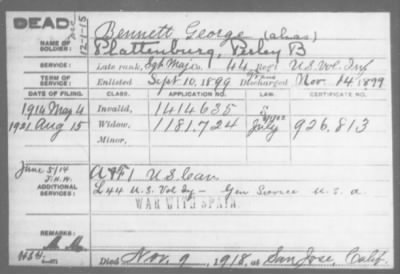 DEAD:
Dec 12-1-15
Bennett George (alias)
NAME OF SOLDIER: Plattenburg, Perley B
SERVICE: Late rank, Sgt Maj Co. 44 Reg't U.S. Vol. Inf
TERM OF SERVICE: Enlisted Sept 10, 1899 Discharged Nov. 14, 1899
DATE OF FILING. CLASS. APPLICATION NO. LAW. CERTIFICATE NO.
1914 May 4 Invalid, 1414635
1921 Aug 15 Widow, 1181.724 July 926.813
Minor,
June 5/14
ADDITIONAL SERVICES: A & F 1 U.S. Cav
L 44 U.S. Vol Inf - Gen Service U.S. A
WAR WITH SPAIN.
REMARKS:
Died Nov. 9, 1918, at San Jose, Calif.